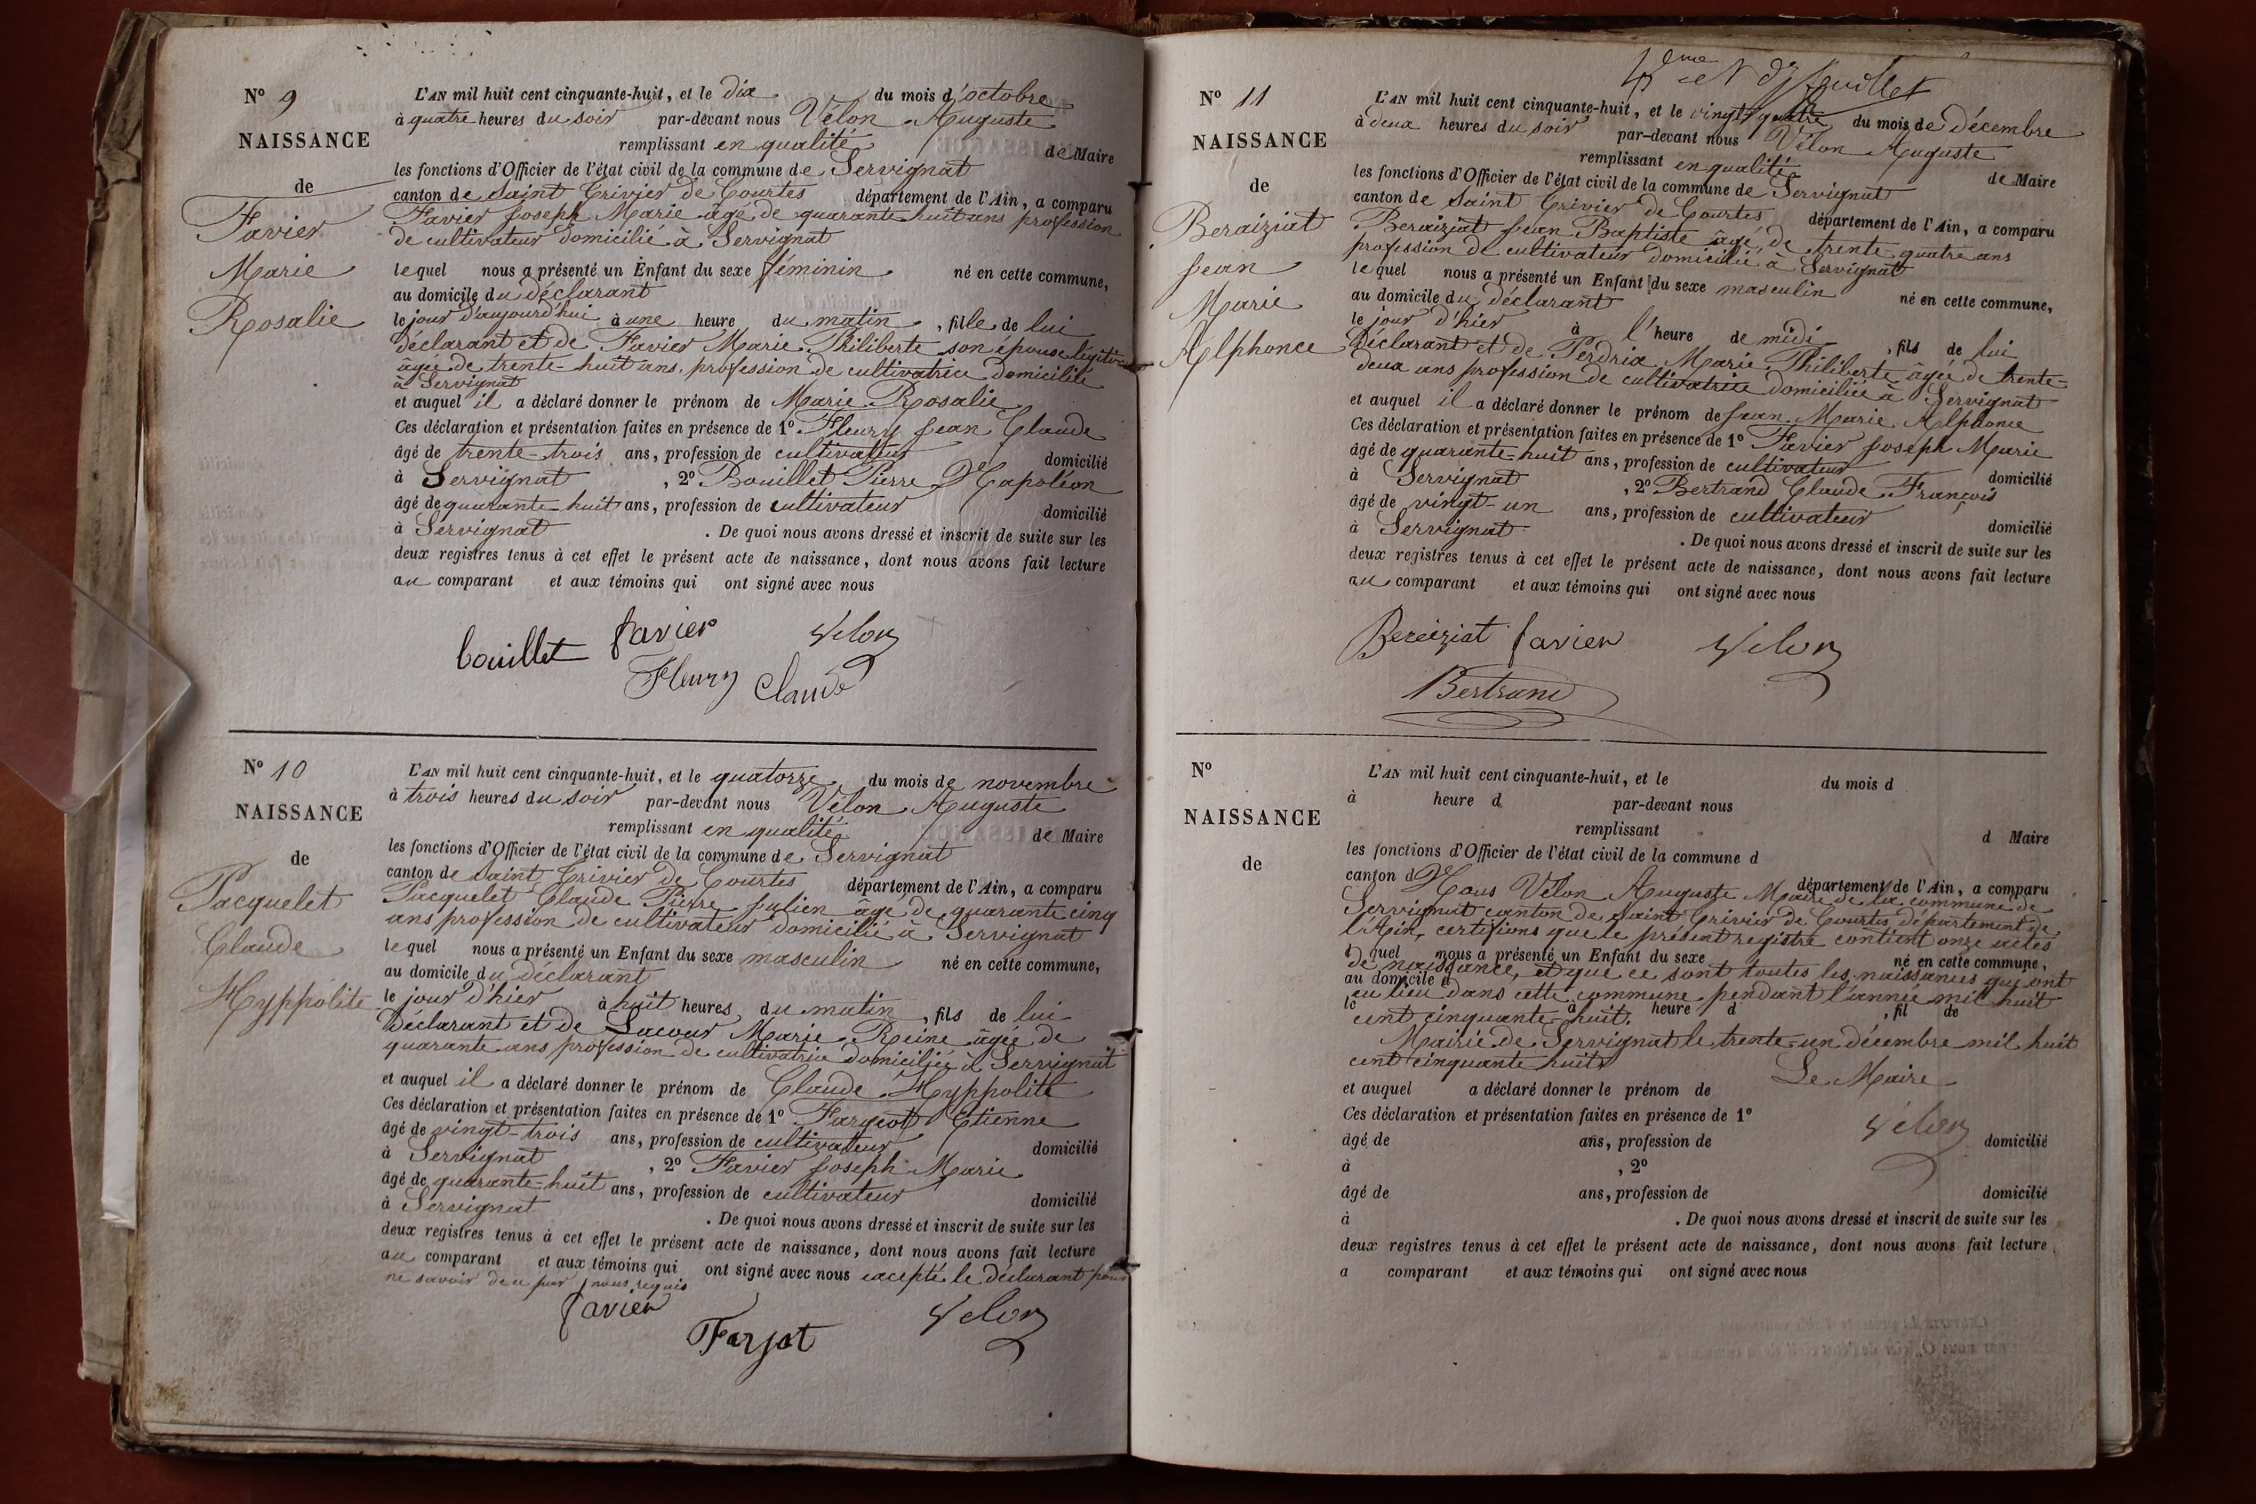 Nº 9
NAISSANCE
de
Favier
Marie
Rosalie
L'AN mil huit cent cinquante-huit, et le dix du mois d'octobre
à quatre heures du soir par-devant nous Vélon Auguste
remplissant en qualité de Maire
les fonctions d'Officier de l'état civil de la commune de Servignat
canton de Saint Trivier de Courtes département de l'Ain, a comparu
Favier Joseph Marie âgé de quarante huit ans profession
de cultivateur domicilié à Servignat
lequel nous a présenté un Enfant du sexe féminin né en cette commune,
au domicile du déclarant
le jour d'aujourd'hui à une heure du matin, fille de lui
déclarant et de Favier Marie Philiberte son épouse légitime
âgée de trente-huit ans, profession de cultivatrice domiciliée
à Servignat
et auquel il a déclaré donner le prénom de Marie Rosalie
Ces déclaration et présentation faites en présence de 1º Fleury Jean Claude
âgé de trente-trois ans, profession de cultivateur domicilié
à Servignat, 2º Bouillet Pierre Napoléon
âgé de quarante huit ans, profession de cultivateur domicilié
à Servignat. De quoi nous avons dressé et inscrit de suite sur les
deux registres tenus à cet effet le présent acte de naissance, dont nous avons fait lecture
au comparant et aux témoins qui ont signé avec nous
bouillet favier Velon
Fleury Claude
Nº 10
NAISSANCE
de
Pacquelet
Claude
Hyppolite
L'AN mil huit cent cinquante-huit, et le quatorze du mois de novembre
à trois heures du soir par-devant nous Vélon Auguste
remplissant en qualité de Maire
les fonctions d'Officier de l'état civil de la commune de Servignat
canton de Saint Trivier de Courtes département de l'Ain, a comparu
Pacquelet Claude Pierre Julien âgé de quarante cinq
ans profession de cultivateur domicilié à Servignat
lequel nous a présenté un Enfant du sexe masculin né en cette commune,
au domicile du déclarant
le jour d'hier à huit heures du matin, fils de lui
déclarant et de Lacour Marie Reine âgée de
quarante ans profession de cultivatrice domiciliée à Servignat
et auquel il a déclaré donner le prénom de Claude Hyppolite
Ces déclaration et présentation faites en présence de 1º Fargeot Etienne
âgé de vingt-trois ans, profession de cultivateur domicilié
à Servignat, 2º Favier Joseph Marie
âgé de quarante-huit ans, profession de cultivateur domicilié
à Servignat. De quoi nous avons dressé et inscrit de suite sur les
deux registres tenus à cet effet le présent acte de naissance, dont nous avons fait lecture
au comparant et aux témoins qui ont signé avec nous excepté le déclarant pour
ne savoir de ce par nous requis
favier Velon
Farjot
4ème et feuillet
Nº 11
NAISSANCE
de
Beraiziat
Jean
Marie
Alphonce
L'AN mil huit cent cinquante-huit, et le vingt quatre du mois de décembre
à deux heures du soir par-devant nous Vélon Auguste
remplissant en qualité de Maire
les fonctions d'Officier de l'état civil de la commune de Servignat
canton de Saint Trivier de Courtes département de l'Ain, a comparu
Beraiziat Jean Baptiste âgé de trente quatre ans
profession de cultivateur domicilié à Servignat
lequel nous a présenté un Enfant du sexe masculin né en cette commune,
au domicile du déclarant
le jour d'hier à l'heure de midi, fils de lui
déclarant et de Perdrix Marie Philiberte âgée de trente-
deux ans profession de cultivatrice domiciliée à Servignat
et auquel il a déclaré donner le prénom de Jean Marie Alphonce
Ces déclaration et présentation faites en présence de 1º Favier Joseph Marie
âgé de quarante-huit ans, profession de cultivateur domicilié
à Servignat, 2º Bertrand Claude François
âgé de vingt-un ans, profession de cultivateur domicilié
à Servignat. De quoi nous avons dressé et inscrit de suite sur les
deux registres tenus à cet effet le présent acte de naissance, dont nous avons fait lecture
au comparant et aux témoins qui ont signé avec nous
Bereiziat favier Velon
Bertrand
Nº
NAISSANCE
de
L'AN mil huit cent cinquante-huit, et le du mois d
à heure d par-devant nous
remplissant d Maire
les fonctions d'Officier de l'état civil de la commune d
canton d département de l'Ain, a comparu
Nous Vélon Auguste Maire de la commune de
Servignat canton de Saint Trivier de Courtes département de
l'Ain, certifions que le présent registre contient onze actes
l quel nous a présenté un Enfant du sexe né en cette commune,
de naissance, et que ce sont toutes les naissances qui ont
au domicile d
eu lieu dans cette commune pendant l'année mil huit
le à heure d, fil de
cent cinquante huit.
Mairie de Servignat le trente-un décembre mil huit
cent cinquante huit
Le Maire
et auquel a déclaré donner le prénom de
Ces déclaration et présentation faites en présence de 1º
Velon
âgé de ans, profession de domicilié
à , 2º
âgé de ans, profession de domicilié
à . De quoi nous avons dressé et inscrit de suite sur les
deux registres tenus à cet effet le présent acte de naissance, dont nous avons fait lecture
a comparant et aux témoins qui ont signé avec nous